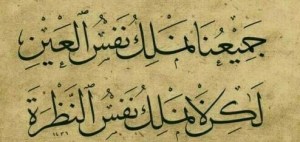 جَمِيعُنَا نَمْلِكُ نَفْسَ الْعَيْنِ
لَكِنْ لَا نَمْلِكُ نَفْسَ النَّظْرَةِ